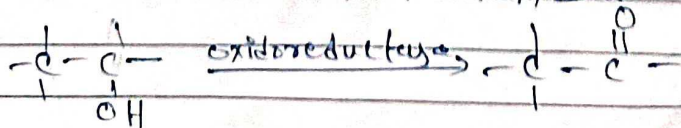 O
-C-C- oxidoreductase -C-C-
OH